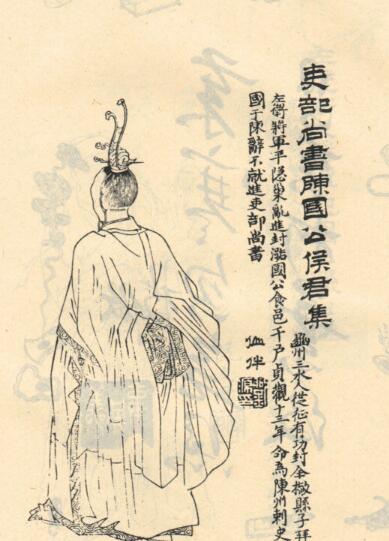 吏部尚書陳國公侯君集
豳州三水人從征有功封全椒縣子拜
左衛將軍平隱巢亂進封潞國公食邑千戶貞觀十三年命為陳州刺史
國于陳辭不就進吏部尚書
仙伴